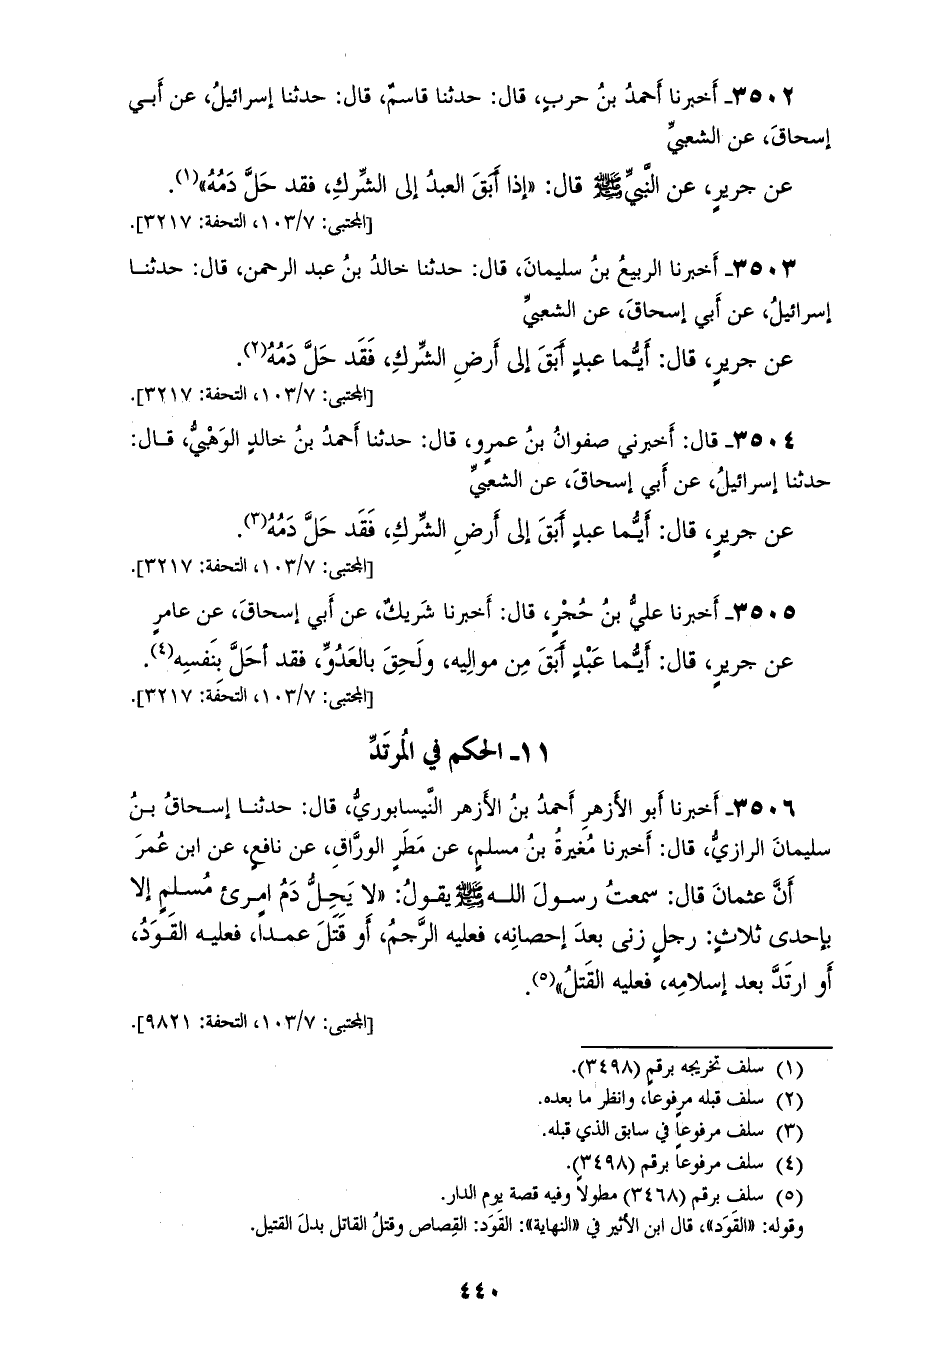 ٣٥٠٢ـ أخبرنا أحمدُ بنُ حربٍ، قال: حدثنا قاسمٌ، قال: حدثنا إسرائيلُ، عن أَبـي
إسحاقَ، عن الشعبيِّ
عن جريرٍ، عن النَّبيِّ ﷺ قال: «إذا أَبَقَ العبدُ إلى الشِّركِ، فقد حَلَّ دَمُهُ»(١).
[المجتبى: ١٠٣/٧، التحفة: ٣٢١٧].
٣٥٠٣ـ أخبرنا الربيعُ بنُ سليمانَ، قال: حدثنا خالدُ بنُ عبد الرحمن، قال: حدثنـا
إسرائيلُ، عن أَبي إسحاقَ، عن الشعبيِّ
عن جريرٍ، قال: أَيُّما عبدٍ أَبَقَ إلى أَرضِ الشِّركِ، فَقَد حَلَّ دَمُهُ(٢).
[المجتبى: ١٠٣/٧، التحفة: ٣٢١٧].
٣٥٠٤ـ قال: أخبرني صفوانُ بنُ عمرٍو، قال: حدثنا أحمدُ بنُ خالدٍ الوَهْبيُّ، قـال:
حدثنا إسرائيلُ، عن أَبي إسحاقَ، عن الشعبيِّ
عن جريرٍ، قال: أَيُّما عبدٍ أَبَقَ إلى أَرضِ الشِّركِ، فَقَد حَلَّ دَمُهُ(٣).
[المجتبى: ١٠٣/٧، التحفة: ٣٢١٧].
٣٥٠٥ـ أخبرنا عليُّ بنُ حُجْرٍ، قال: أخبرنا شَريكٌ، عن أَبي إسحاقَ، عن عامرٍ
عن جريرٍ، قال: أَيُّما عَبْدٍ أَبَقَ مِن مواليه، ولَحِقَ بالعَدُوِّ، فقد أحَلَّ بِنَفسِه(٤).
[المجتبى: ١٠٣/٧، التحفة: ٣٢١٧].
١١ـ الحكم في المُرتَدِّ
٣٥٠٦ـ أخبرنا أبو الأزهرِ أحمدُ بنُ الأزهر النَّيسابوريُّ، قال: حدثنـا إسـحاقُ بـنُ
سليمانَ الرازيُّ، قال: أخبرنا مُغيرةُ بنُ مسلمٍ، عن مَطَرٍ الورَّاقِ، عن نافعٍ، عن ابن عُمرَ
أَنَّ عثمانَ قال: سمعتُ رسـولَ اللـه ﷺ يقولُ: «لا يَحِلُّ دَمُ امـرئٍ مُسلمٍ إلا
بإحدى ثلاثٍ: رجلٍ زنى بعدَ إحصانِه، فعليه الرَّجمُ، أَو قَتَلَ عمـداً، فعليـه القَـوَدُ،
أَو ارتَدَّ بعد إسلامِه، فعليه القَتلُ»(٥).
[المجتبى: ١٠٣/٧، التحفة: ٩٨٢١].
(١) سلف تخريجه برقم (٣٤٩٨).
(٢) سلف قبله مرفوعاً، وانظر ما بعده.
(٣) سلف مرفوعاً في سابق الذي قبله.
(٤) سلف مرفوعاً برقم (٣٤٩٨).
(٥) سلف برقم (٣٤٦٨) مطولاً وفيه قصة يوم الدار.
وقوله: «القَوَد»، قال ابن الأثير في «النهاية»: القَوَد: القِصاص وقتلُ القاتل بدلَ القتيل.
٤٤٠